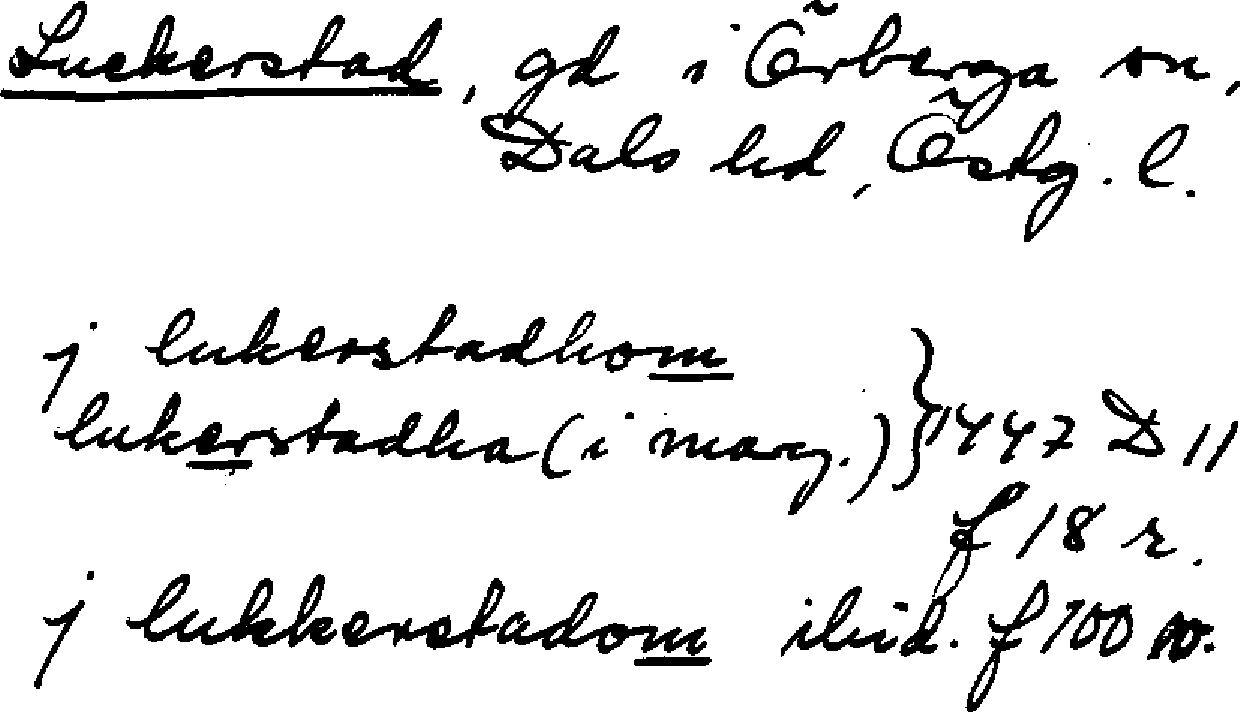 Luckerstad, gd i Örberga sn,
Dals hd, Östg. l.
j lukerstadhom
lukerstadha (i marg.) } 1447 D 11
f 18 r.
j lukkerstadom ibid. f 100 v.